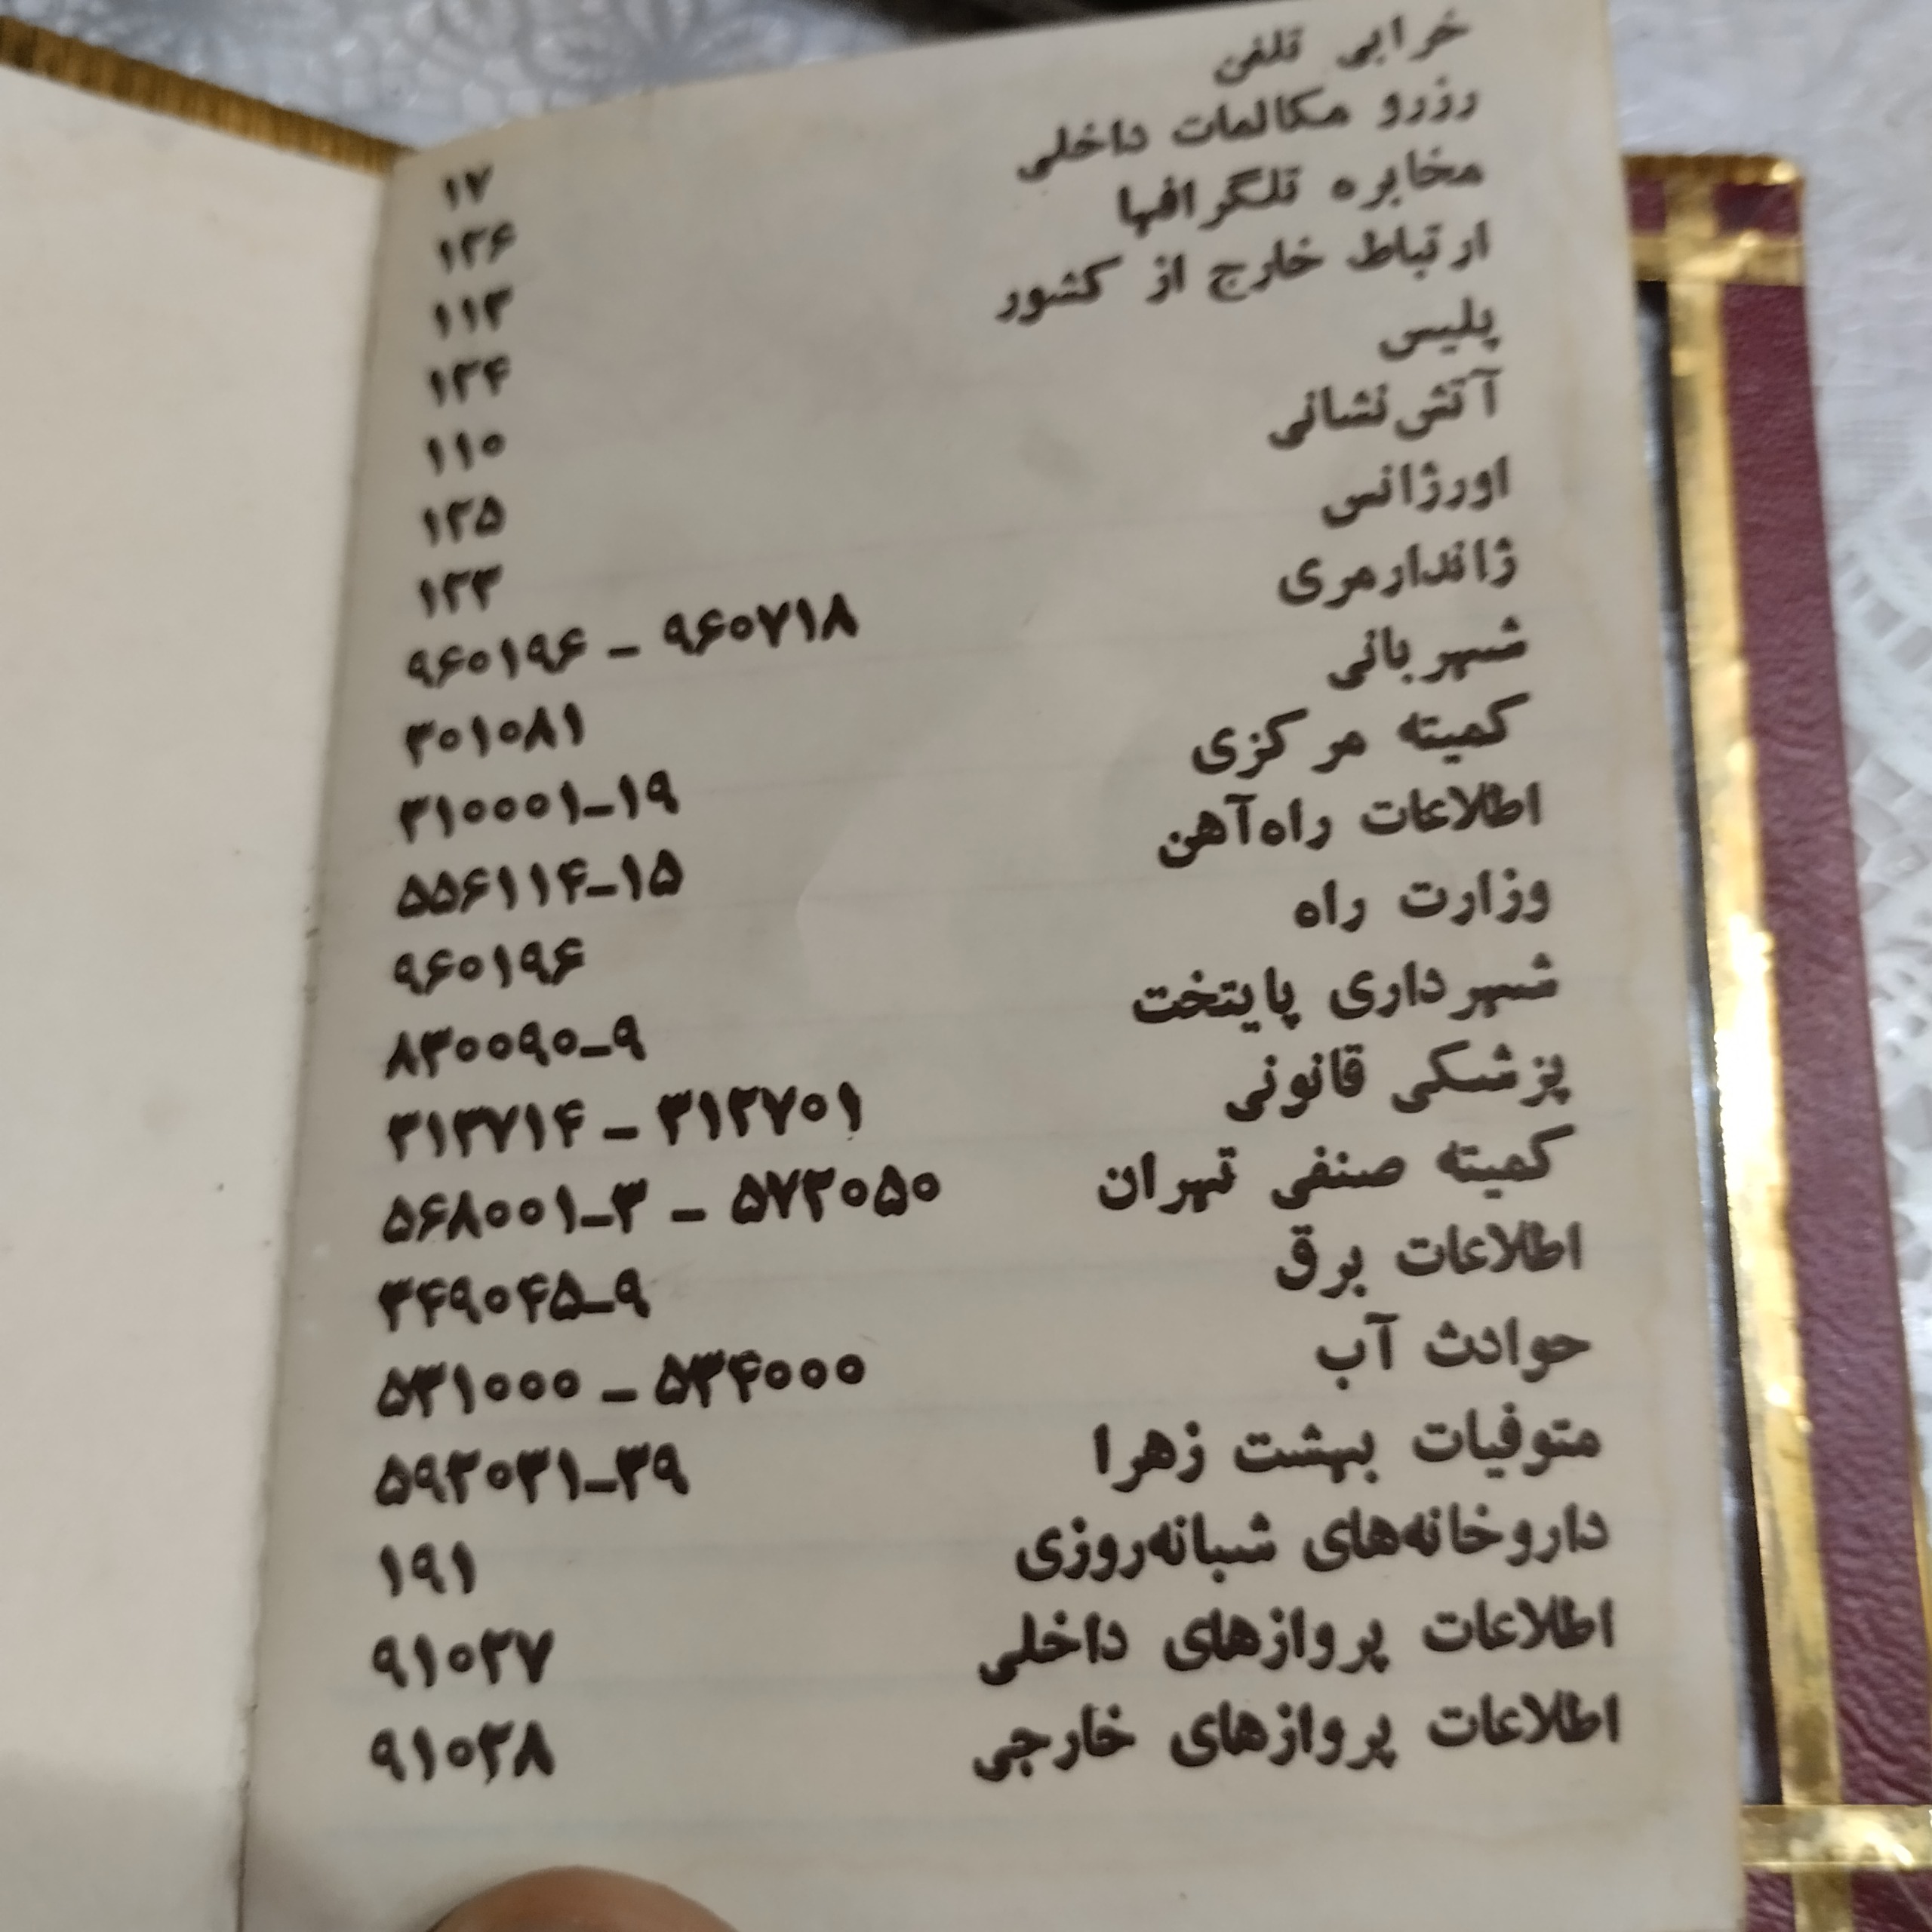 خرابی تلفن ۱۷
رزرو مکالمات داخلی ۱۲۶
مخابره تلگرافها ۱۱۳
ارتباط خارج از کشور ۱۲۴
پلیس ۱۱۰
آتش‌نشانی ۱۲۵
اورژانس ۱۲۳
ژاندارمری ۹۶۰۱۹۶ - ۹۶۰۷۱۸
شهربانی ۳۰۱۰۸۱
کمیته مرکزی ۳۱۰۰۰۱-۱۹
اطلاعات راه‌آهن ۵۵۶۱۱۴-۱۵
وزارت راه ۹۶۰۱۹۶
شهرداری پایتخت ۸۳۰۰۹۰-۹
پزشکی قانونی ۳۱۳۷۱۴ - ۳۱۲۷۰۱
کمیته صنفی تهران ۵۶۸۰۰۱-۳ - ۵۷۲۰۵۰
اطلاعات برق ۳۴۹۰۴۵-۹
حوادث آب ۵۳۱۰۰۰ - ۵۳۴۰۰۰
متوفیات بهشت زهرا ۵۹۲۰۳۱-۳۹
داروخانه‌های شبانه‌روزی ۱۹۱
اطلاعات پروازهای داخلی ۹۱۰۲۷
اطلاعات پروازهای خارجی ۹۱۰۲۸